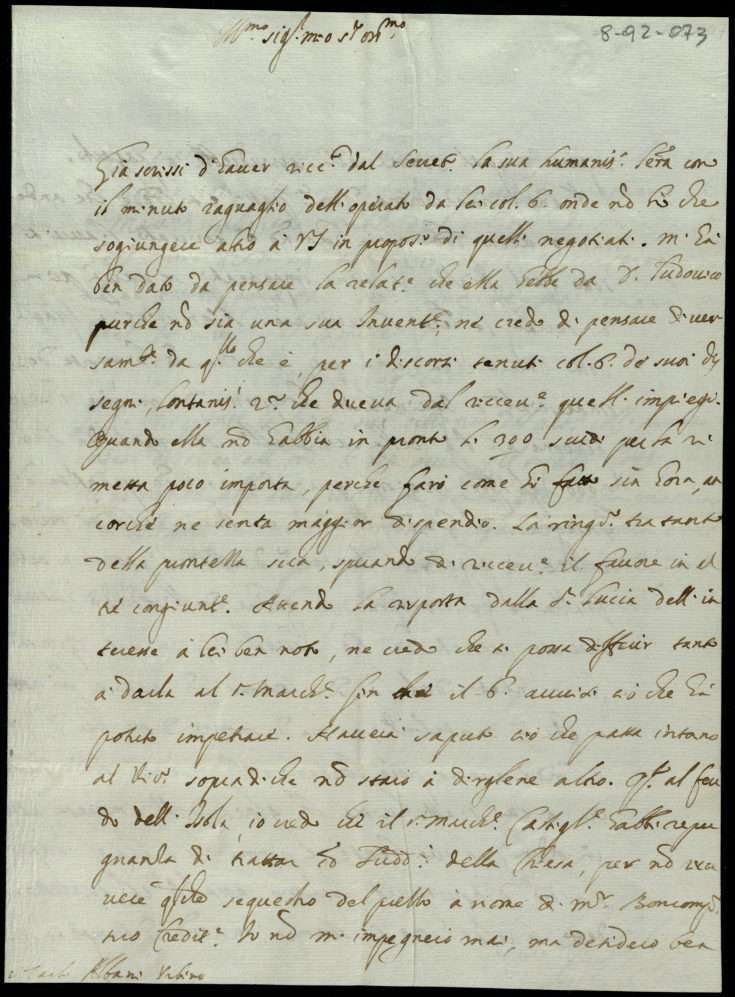 8-92-073
Ill.mo sig.r mio s.r oss.mo
Già scrissi d'haver ricc.to dal Seret. la sua humanis.a lett.ra con
il minuto raguaglio dell'operato da lei col. b. onde nō hò che
sogiungere altro à VS in propos.o di quelli negotiati. m'hà
ben dato da pensare la relat.e che ella hebbe da D. Ludovico
purche nō sia una sua Invent.e, né credo di pensare diver
sam.te da q.llo che è, per i discorsi tenuti col. b. de suoi di
segni, lontanis.i che diceva dal ricev.e quelli impieghi.
Quando ella nō habbia in pronto li 200 scudi per la ri
messa poco importa, perche farò come hò fatto sin hora, an
corche ne senta maggior dispendio. La ring.o tra tanto
della prontezza sua, sperando di ricev.e il favore in al
tre congiunt.e. Attendo la risposta dalla S.ra Lucia dell'in
teresse à lei ben noto, ne credo che si possa differir tanto
à darla al s. March.e sin che il b. avvisi ciò che hà
potuto impetrare. Haverà saputo ciò che passa intorno
al sopra di che nō starò à dirglene altro. q.to al feu
do dell'Isola, io credo che il s. March.e Castigl.e habbi repu
gnanza di trattar cō della Chiesa, per nō
sequestro del prezzo à nome di m.r Boncomp.
suo Credit.e Io nō m'impegnerò mai, ma desidero ben
Albani Urbino